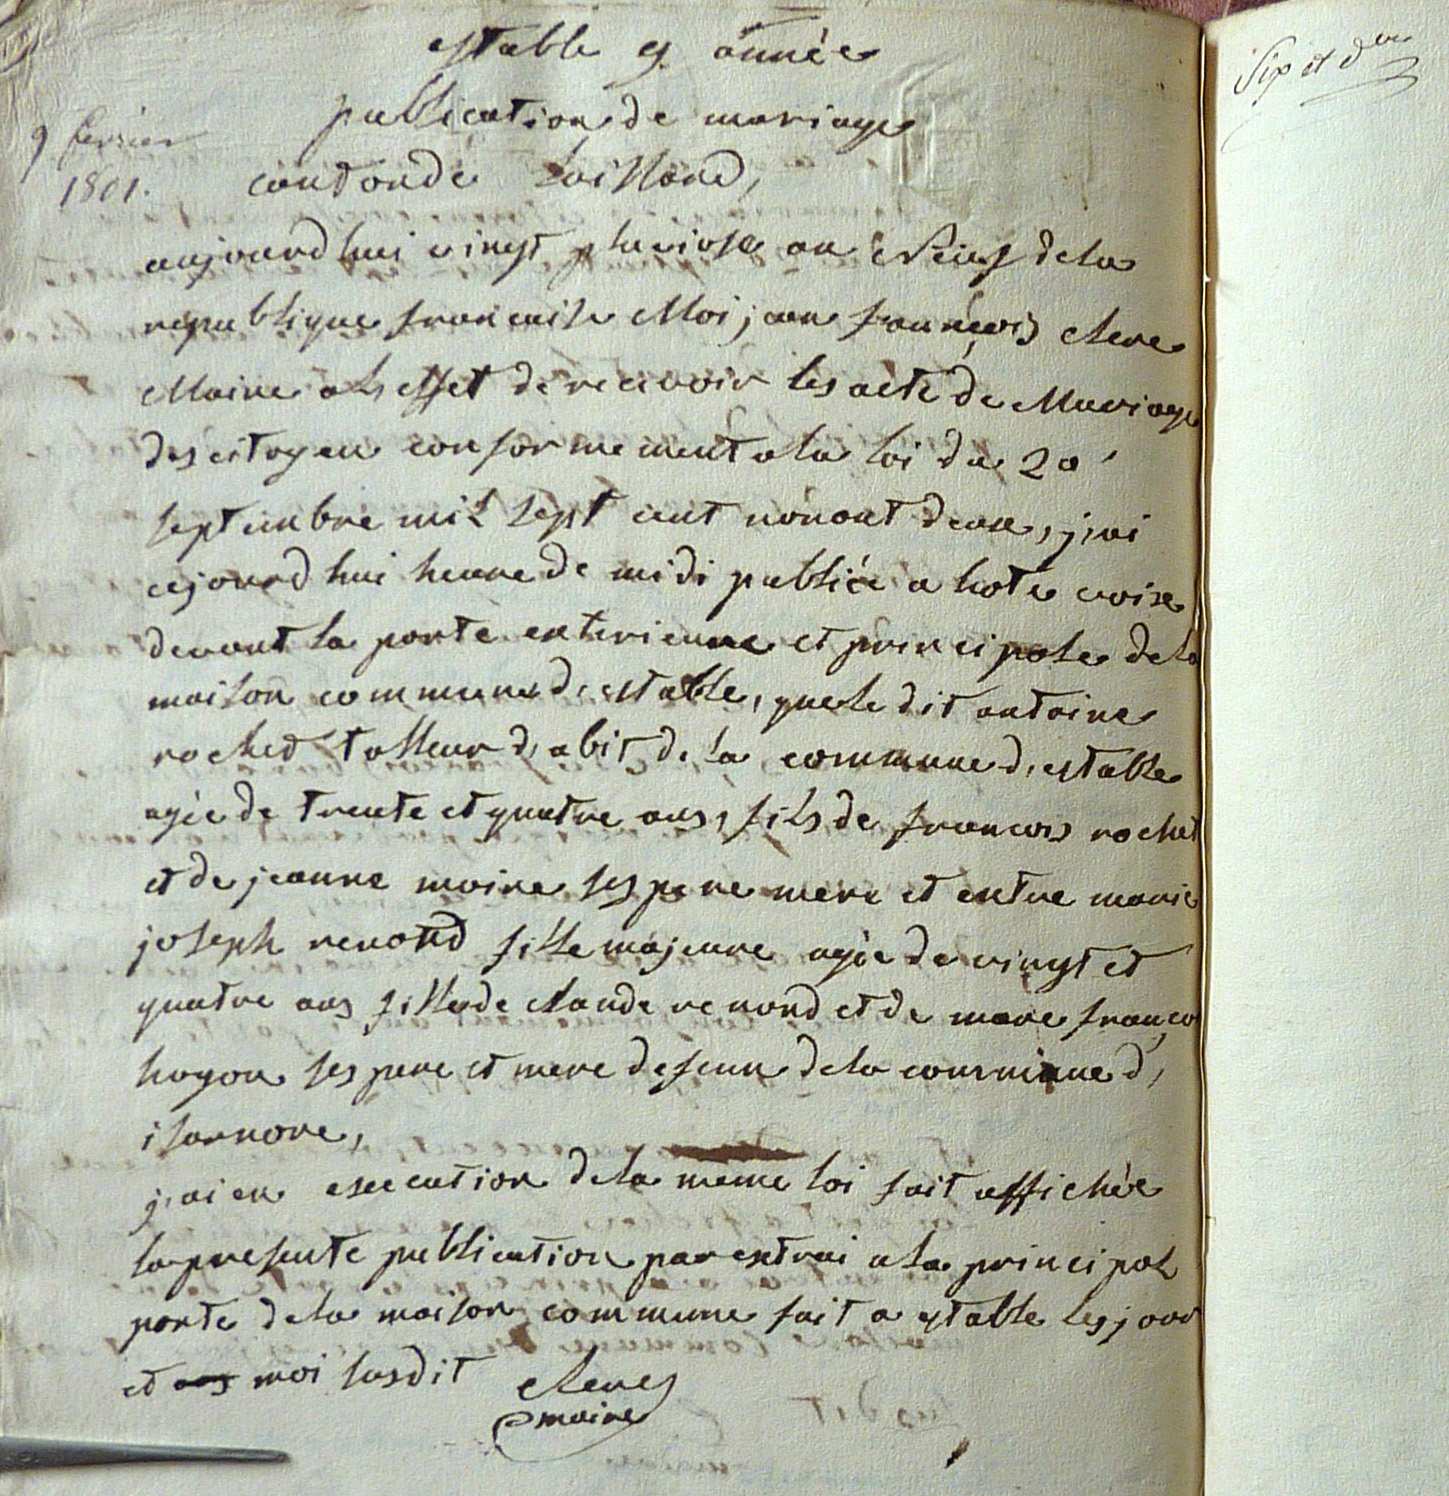 estable 9 année
publication de mariage
9 fevrier
1801.
canton de
aujourdhui vingt pluviose an Neuf dela
republique francaise Moi jean francois clere
Maire a les effet de recevoir les acte de Mariage
des citoyen conformement a la loi du 20
septembre mil sept cent nonont deux, j,ai
cejourd hui heure de midi publiée a hote voix
devant la porte exterieure et principale dela
maison commune d, estable, que le dit antoine
rochet talleur d, abit de la commune d, estable
agée de trente et quatre ans, fils de francois rochet
et de jeanne moine ses pere mere et entre marie
joseph renond fille majeure agée de vingt et
quatre ans fille de claude renond et de marie françoi
hugon ses pere et mere defeun de la commune d,
isarnore,
j,ai en execution de la meme loi fait affichée
la presente publication par extrai a la principal
porte de la maison commune fait a estable les jour
et ans moi susdit clere
maire
Six et d